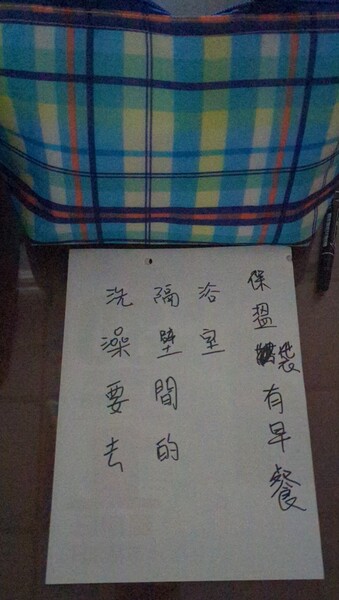 保溫袋有早餐
洗澡要去
隔壁間的
浴室